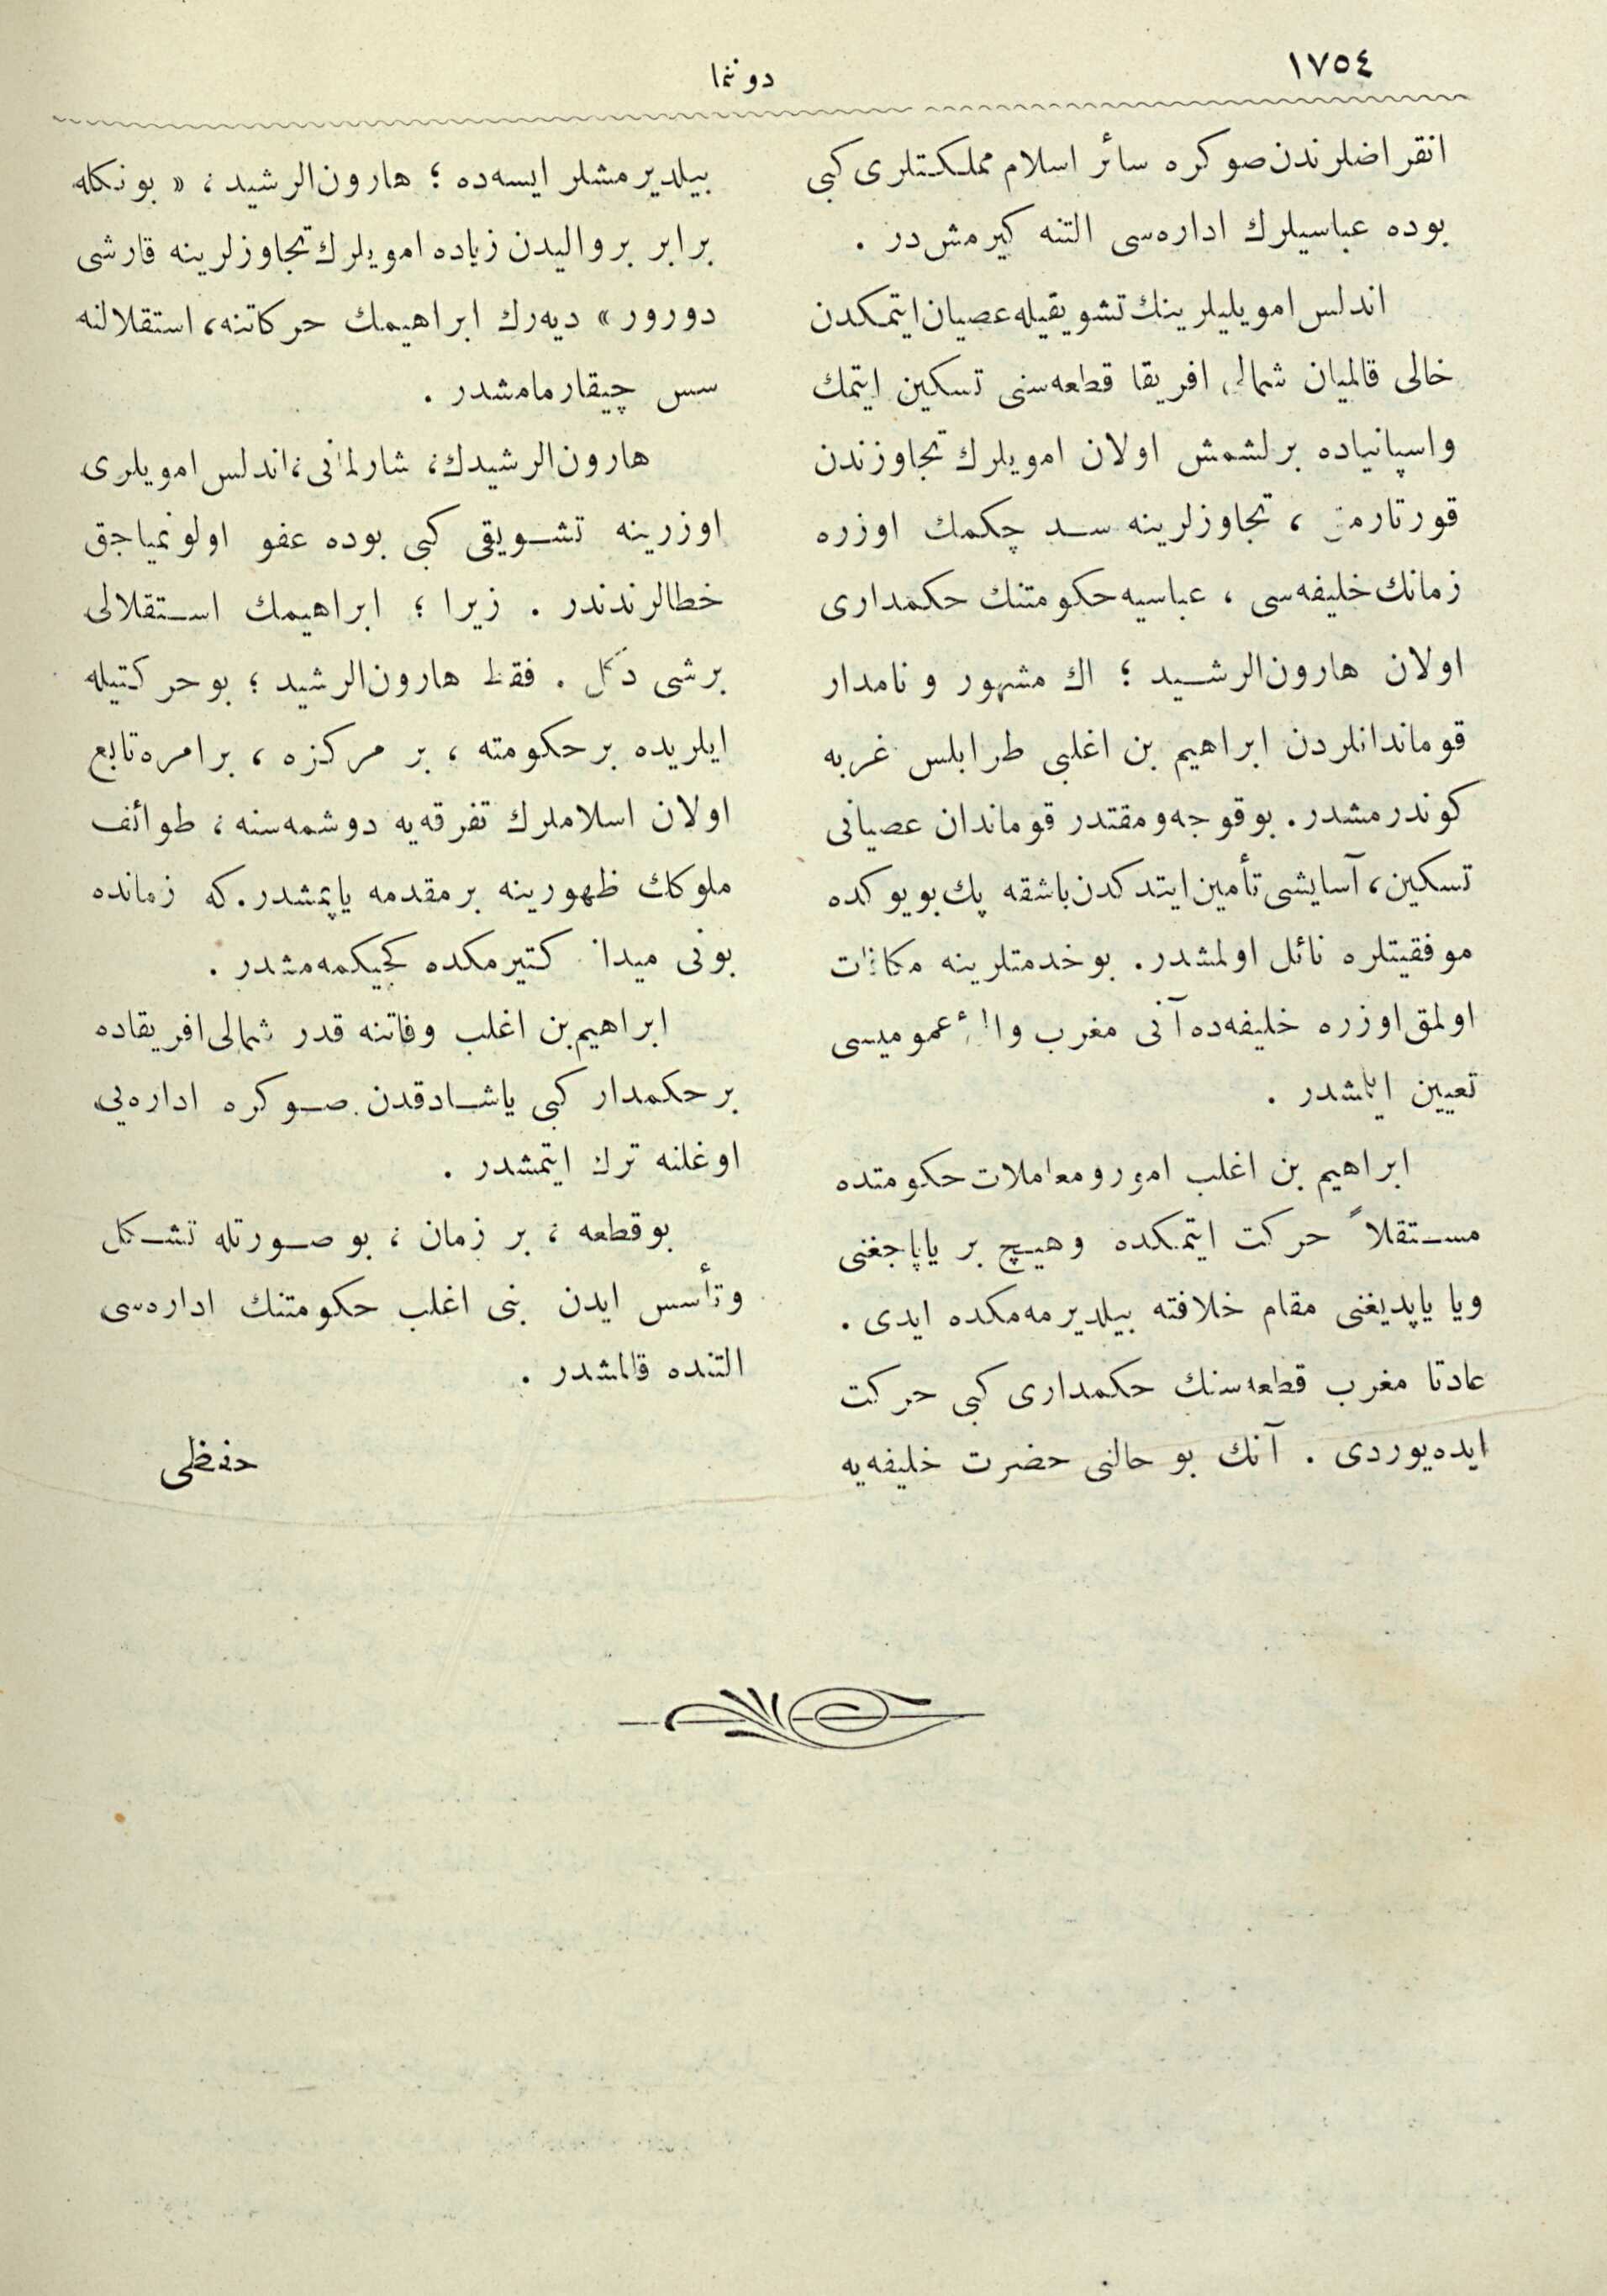 ١٧٥٤
دوننما
انقراضلرندن صوكره سائر اسلام مملكتلری كبی
بوده عباسیلرك اداره‌سی التنه كیرمش‌در .
اندلس امویلیلرینك تشویقیله عصیان ایتمكدن
خالی قالمیان شمالی افریقا قطعه‌سنی تسكین ایتمك
واسپانیاده برلشمش اولان امویلرك تجاوزندن
قورتارمق ، تجاوزلرینه سد چكمك اوزره
زمانك خلیفه‌سی ، عباسیه حكومتنك حكمداری
اولان هارون‌الرشید ؛ اك مشهور و نامدار
قوماندانلردن ابراهیم بن اغلبی طرابلس غربه
كوندرمشدر . بو قوجه و مقتدر قوماندان عصیانی
تسكین ، آسایشی تأمین ایتدكدن باشقه پك بویوكده
موفقیتلره نائل اولمشدر . بو خدمتلرینه مكافات
اولمق اوزره خلیفه‌ده آنی مغرب والئ عمومیسی
تعیین ایلمشدر .
ابراهیم بن اغلب امور و معاملات حكومتده
مستقلاً حركت ایتمكده وهیچ بر یاپاجغنی
ویا یاپدیغنی مقام خلافته بیلدیرمه‌مكده ایدی .
عادتا مغرب قطعه‌سنك حكمداری كبی حركت
ایده‌یوردی . آنك بو حالنی حضرت خلیفه‌یه
بیلدیرمشلر ایسه‌ده ؛ هارون‌الرشید ، « بونكله
برابر بر والیدن زیاده امویلرك تجاوزلرینه قارشی
دورور » دیه‌رك ابراهیمك حركاتنه ، استقلالنه
سس چیقارمامشدر .
هارون‌الرشیدك ، شارلمانی ، اندلس امویلری
اوزرینه تشویقی كبی بوده عفو اولونمیاجق
خطالرندندر . زیرا ؛ ابراهیمك استقلالی
برشی دكل . فقط هارون‌الرشید ؛ بو حركتیله
ایلریده برحكومته ، بر مركزه ، بر امره تابع
اولان اسلاملرك تفرقه‌یه دوشمه‌سنه ، طوائف
ملوكك ظهورینه برمقدمه یاپمشدر . كه زمانده
بونی میدانه كتیرمكده كجیكمه‌مشدر .
ابراهیم بن اغلب وفاتنه قدر شمالی افریقاده
بر حكمدار كبی یاشادقدن صوكره اداره‌یی
اوغلنه ترك ایتمشدر .
بو قطعه ، بر زمان ، بو صورتله تشكل
وتأسس ایدن بنی اغلب حكومتنك اداره‌سی
التنده قالمشدر .
حفظی